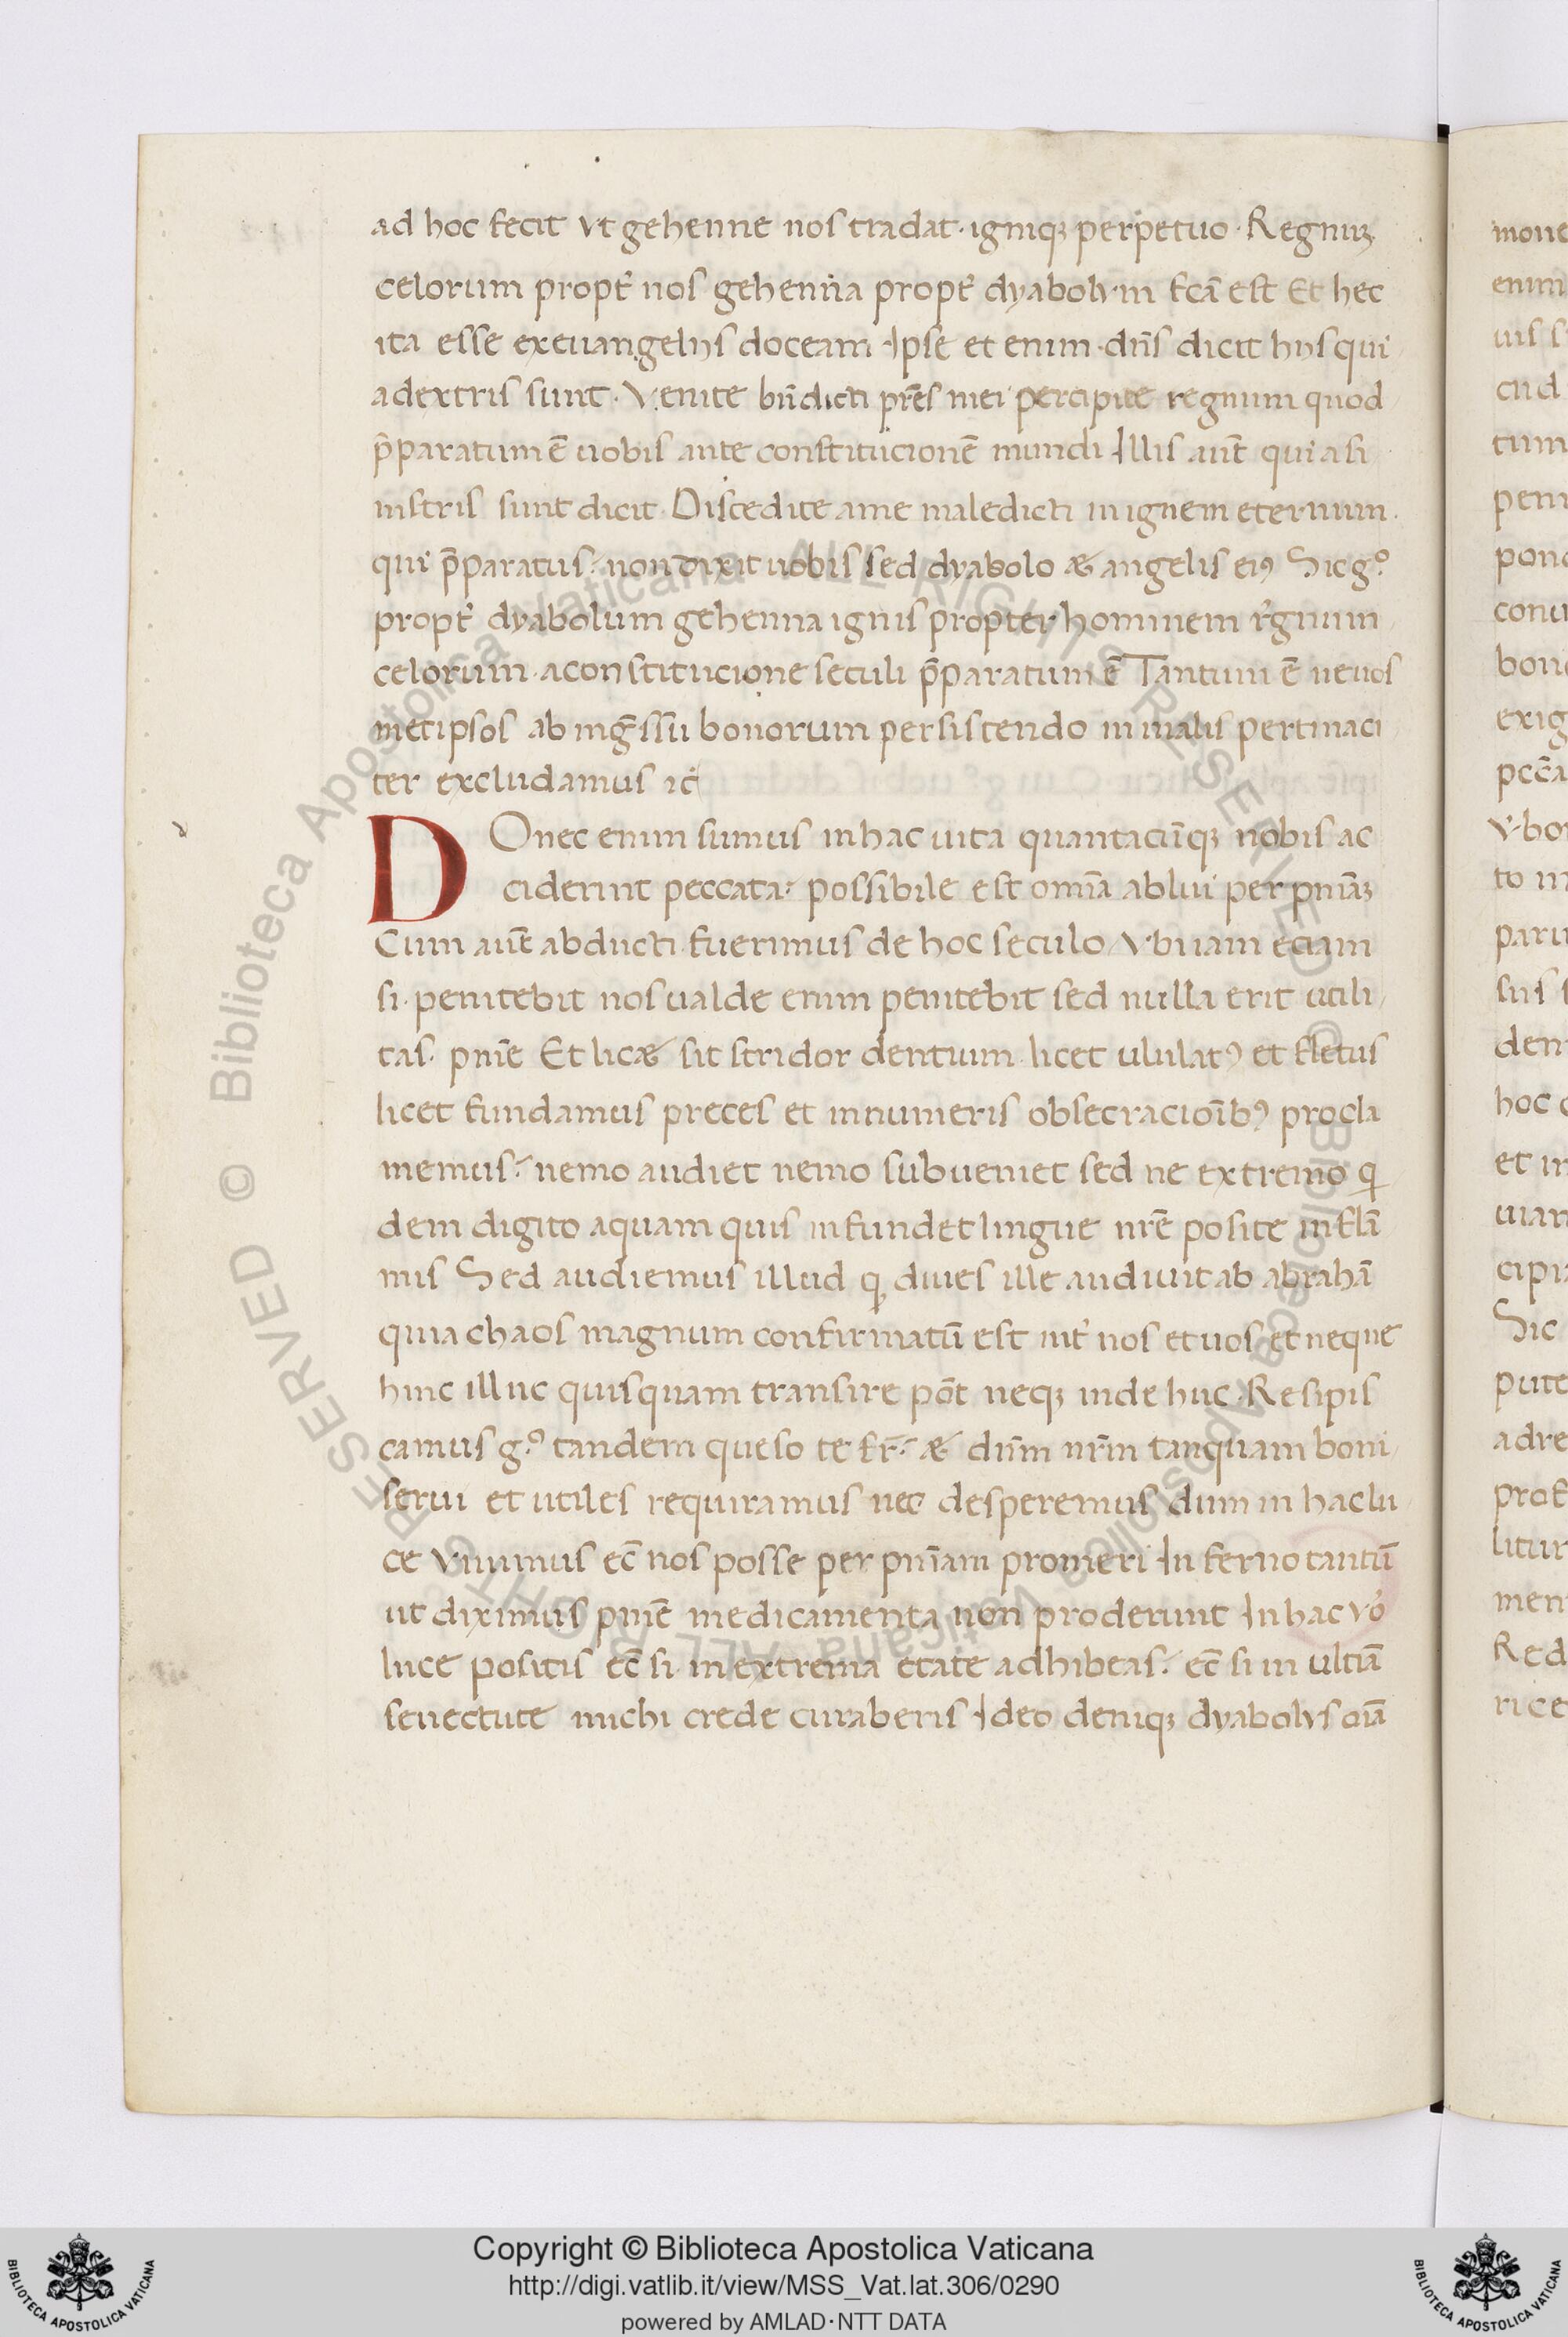 ad hoc fecit vt gehenne nos tradat · igniqꝫ perpetuo · Regnuꝫ
celorum propt̉ nos gehenna propt̉ dyabolvm fcā est Et hec
ita esse exeuangelijs doceam · Ipse et enim · dn̄s dicit hijs qui
adextris sunt · Venite bn̄dicti pr̄es mei percipite regnum quod
p̄paratum ē uobis ante constitucionē mundi Illis aut̄ qui asi
nistris sunt dicit · Discedite ame maledicti inignem eternum ·
qui p̄paratus · non dixit uobis sed dyabolo & angelis eiꝰ Sic g°
propt̉ dyabolum gehenna ignis propter hominem r̉gnum
celorum · aconstitucione seculi p̄paratum ē Tantum ē ne uos
metipsos ab ingr̄ssu bonorum persistendo in malis pertinaci
ter excludamus ⁊c̉
DOnec enim sumus inhac uita quantacūqꝫ nobis ac
ciderint peccata · possibile est omīa ablui per pn̄iaꝫ
Cum aut̄ abducti fuerimus de hoc seculo vbi iam eciam
si · penitebit nos ualde enim penitebit sed nulla erit utili
tas · pn̄ie Et lic& sit stridor dentium · licet ululatꝰ et fletus
licet fundamus preces et innumeris obsecracioībꝰ procla
memus · nemo audiet nemo subueniet sed ne extremo qi
dem digito aquam quis infundet lingue nr̄e posite in flā
mis Sed audiemus illud ꝙ diues ille audiuit ab abrahā
quia chaos magnum confirmatū est int̉ nos et uos et neque
hinc illuc quisquam transire pōt neqꝫ inde huc · Resipis
camus g° tandem queso te fr̄ · & dn̄m nr̄m tanquam boni
serui et utiles requiramus nec desperemus dum in hac lu
ce viuimus ec̄ nos posse per pn̄iam promeri In ferno tantū
ut diximus pn̄ie medicamenta non proderunt In hac vo̓
luce positis ec̄ si · in extrema etate adhibeas · ec̄ si in ultīa
senectute michi crede curaberis Ideo deniqꝫ dyabolvs oīa
Copyright © Biblioteca Apostolica Vaticana
http://digi.vatlib.it/view/MSS_Vat.lat.306/0290
powered by AMLAD·NTT DATA